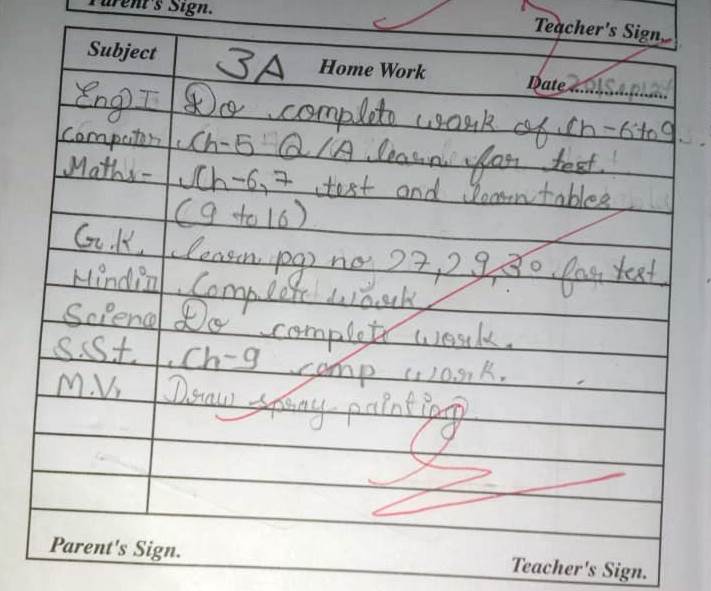 Parent's Sign.
Teacher's Sign.
Subject 3A Home Work Date
Eng I Do complete work of Ch-6 to 9.
Computer Ch-5 Q/A learn for test.
Maths- Ch-6,7 test and learn tables
(9 to 16)
G.K. learn pg no 27,29,30 for test.
Hindi Complete work
Science Do complete work.
S.St. Ch-9 comp work.
M.V. Draw spray painting
Parent's Sign.
Teacher's Sign.